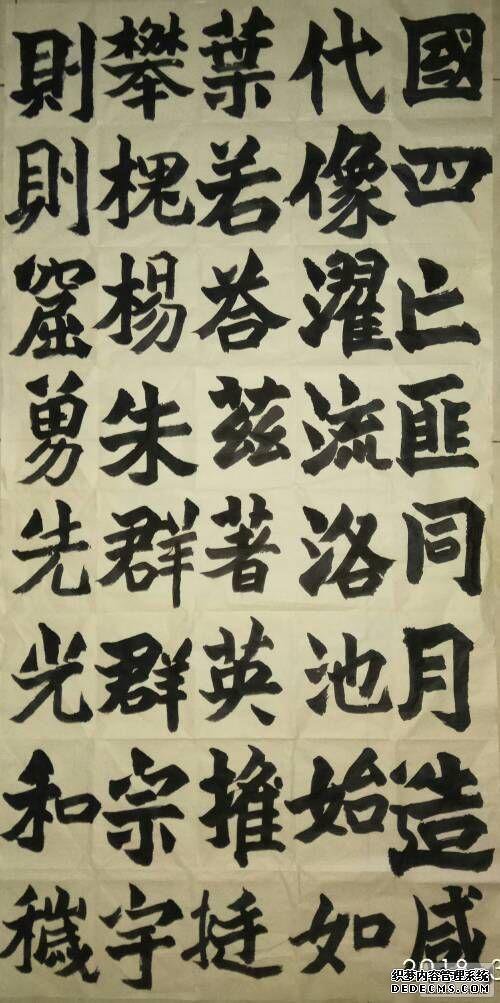 國四亡匪同月造咸
代像濯流洛池始如
葉若荅茲著英摧挺
攀槐楊朱群群宗宇
則則窟勇先光和穢
2018
织梦内容管理系统
DEDECMS.COM